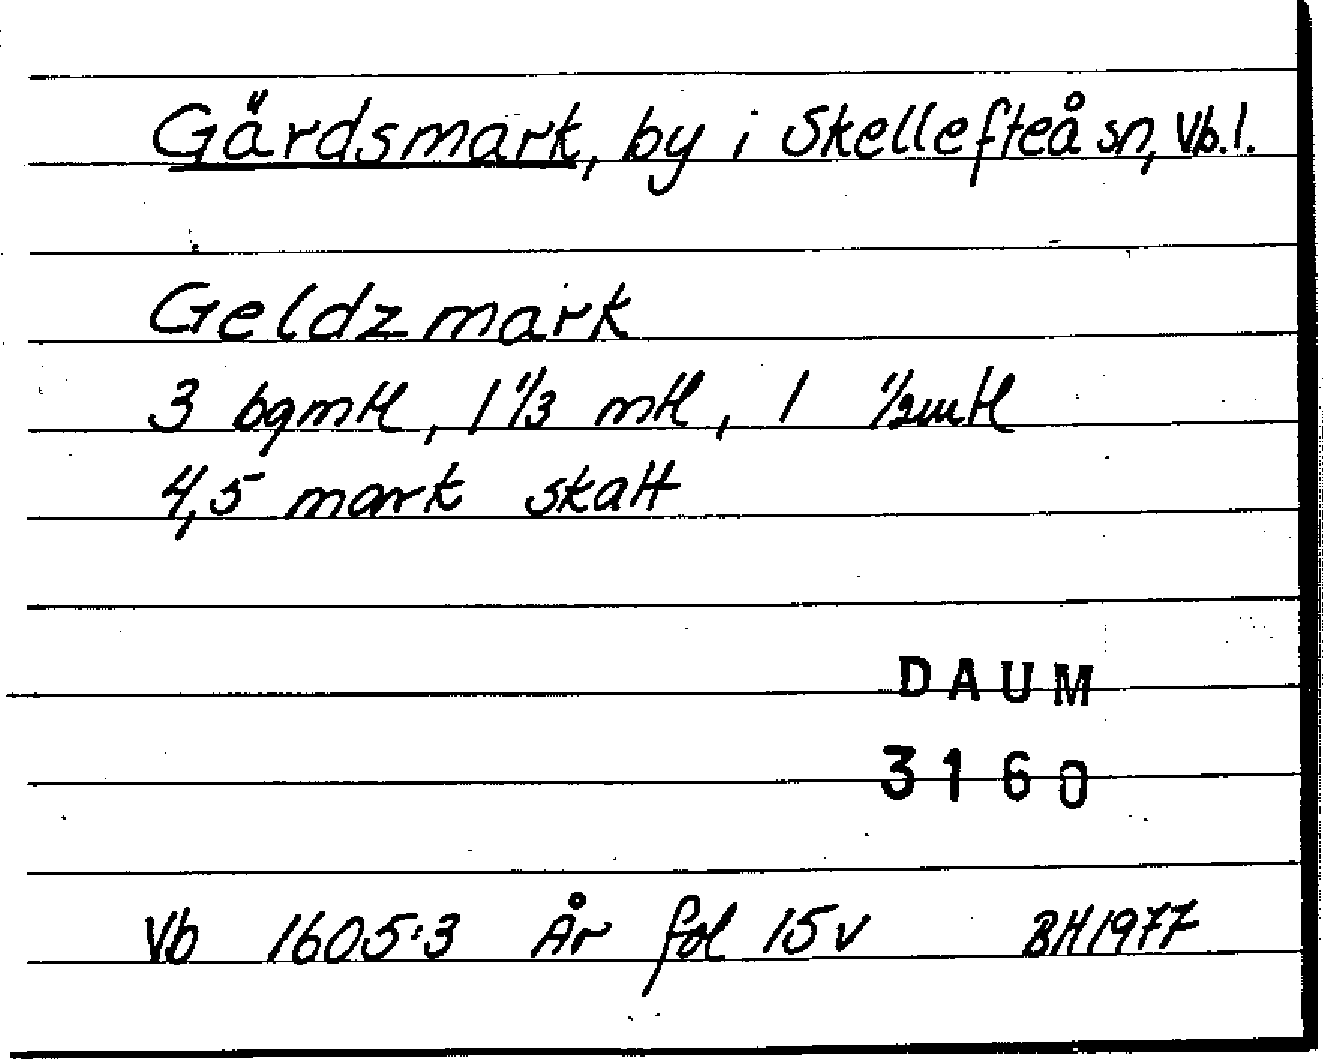 Gärdsmark, by i Skellefteå sn, Vb.l.
Geldzmark
3 bgmtl, 1 1/3 mtl, 1 1/2mtl
4,5 mark skatt
DAUM
3160
Vb 1605:3 År fol 15v BH1977